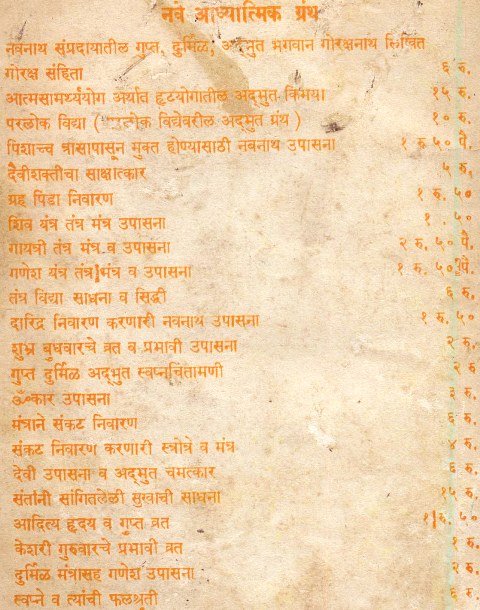 नवे आध्यात्मिक ग्रंथ
नवनाथ संप्रदायातील गुप्त, दुर्मिळ, अद्भुत भगवान गोरक्षनाथ लिखित
गोरक्ष संहिता ६ रु.
आत्मसामर्थ्ययोग अर्थात हटयोगातील अद्भुत किमया १५ रु.
परलोक विद्या ( विद्येवरील अद्भुत ग्रंथ ) १० रु.
पिशाच्च त्रासापासून मुक्त होण्यासाठी नवनाथ उपासना १ रु ५० पै.
दैवीशक्तीचा साक्षात्कार ५ रु.
ग्रह पिडा निवारण १ रु. ५०
शिव यंत्र तंत्र मंत्र उपासना १ .५०
गायत्री तंत्र मंत्र व उपासना २ रु. ५० पै.
गणेश यंत्र तंत्र मंत्र व उपासना १ रु. ५० पै.
तंत्र विद्या साधना व सिद्धी ६ रु.
दारिद्र निवारण करणारी नवनाथ उपासना १ रु. ५०
शुभ्र बुधवारचे व्रत व प्रभावी उपासना २ रु.
गुप्त दुर्मिळ अद्भुत स्वप्नचिंतामणी २ रु
ॐकार उपासना ३ रु.
मंत्राने संकट निवारण ६ रु.
संकट निवारण करणारी स्त्रोत्रे व मंत्र ४ रु.
देवी उपासना व अद्भुत चमत्कार ६ रु.
संतांनी सांगितलेली सुखाची साधना १५ रु.
आदित्य हृदय व गुप्त व्रत १ रु. ५०
केशरी गुरुवारचे प्रभावी व्रत १ रु.
दुर्मिळ मंत्रासह गणेश उपासना २ रु.
स्वप्ने व त्यांची फलश्रुती ६ रु.